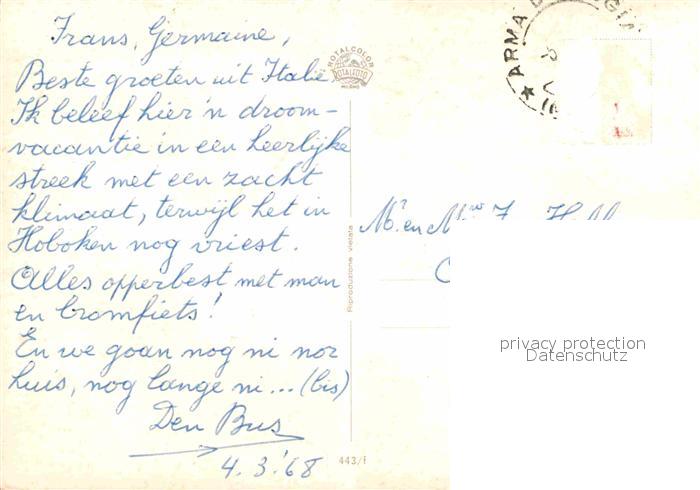 Frans, Germaine,
Beste groeten uit Italië.
Ik beleef hier 'n droom-
vacantie in een heerlijke
streek met een zacht
klimaat, terwijl het in
Hoboken nog vriest.
Alles opperbest met man
en bromfiets!
En we goan nog ni nor
huis, nog lange ni... (bis)
Den Bus
4.3.'68
ROTALCOLOR
ROTALFOTO
MILANO
Riproduzione vietata
443/F
ARMA DI
Mr. en Mevr
privacy protection
Datenschutz